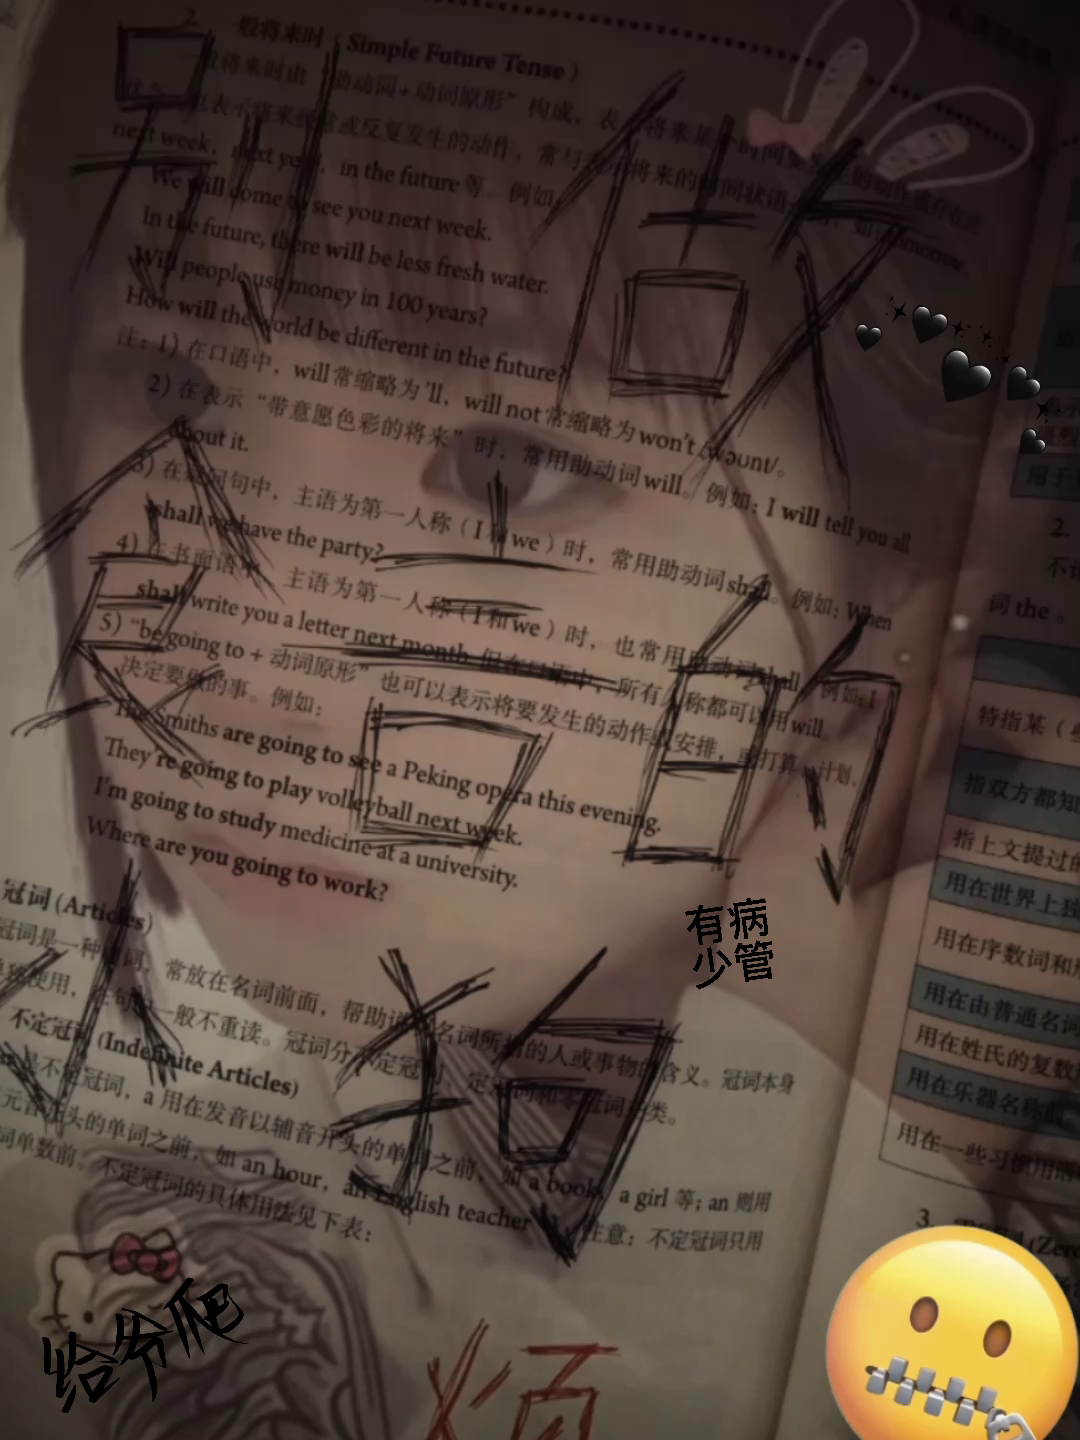 2. 一般将来时（Simple Future Tense）
next week, next year, in the future 等。例如：
We will come to see you next week.
In the future, there will be less fresh water.
Will people use money in 100 years?
How will the world be different in the future?
注：1) 在口语中，will 常缩略为 'll，will not 常缩略为 won't /wəʊnt/。
2) 在表示“带意愿色彩的将来”时，常用助动词 will。例如：I will tell you all
about it.
3) 在疑问句中，主语为第一人称（I 和 we）时，常用助动词 shall。例如：When
shall we have the party?
4) 在书面语中，主语为第一人称（I 和 we）时，也常用助动词 shall。例如：I
shall write you a letter next month. 但在口语中，所有人称都可以用 will。
5) “be going to + 动词原形”也可以表示将要发生的动作或安排，或打算、计划、
决定要做的事。例如：
The Smiths are going to see a Peking opera this evening.
They're going to play volleyball next week.
I'm going to study medicine at a university.
Where are you going to work?
冠词 (Articles)
冠词是一种虚词，常放在名词前面，帮助说明名词所指的人或事物的含义。冠词本身
使用，在句中一般不重读。冠词分不定冠词、定冠词和零冠词三类。
不定冠词 (Indefinite Articles)
是不定冠词，a 用在发音以辅音开头的单词之前，如 a book, a girl 等；an 则用
元音开头的单词之前，如 an hour, an English teacher 注意：不定冠词只用
词单数前。不定冠词的具体用法见下表：
别做
食言的
小狗
有病
少管
给爷爬
烦
用于
2.
不
词 the 。
特指某（
指双方都知
指上文提过的
用在世界上独
用在序数词和
用在由普通名词
用在姓氏的复数
用在乐器名称
用在一些习惯用语
3.